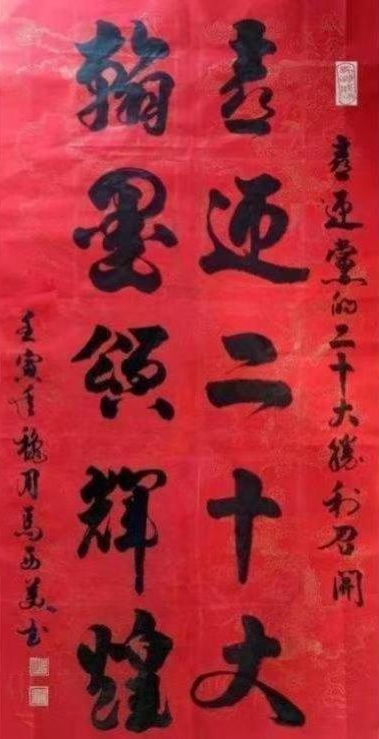 喜迎党的二十大勝利召開
喜迎二十大
翰墨頌輝煌
壬寅年魏月馬西美书